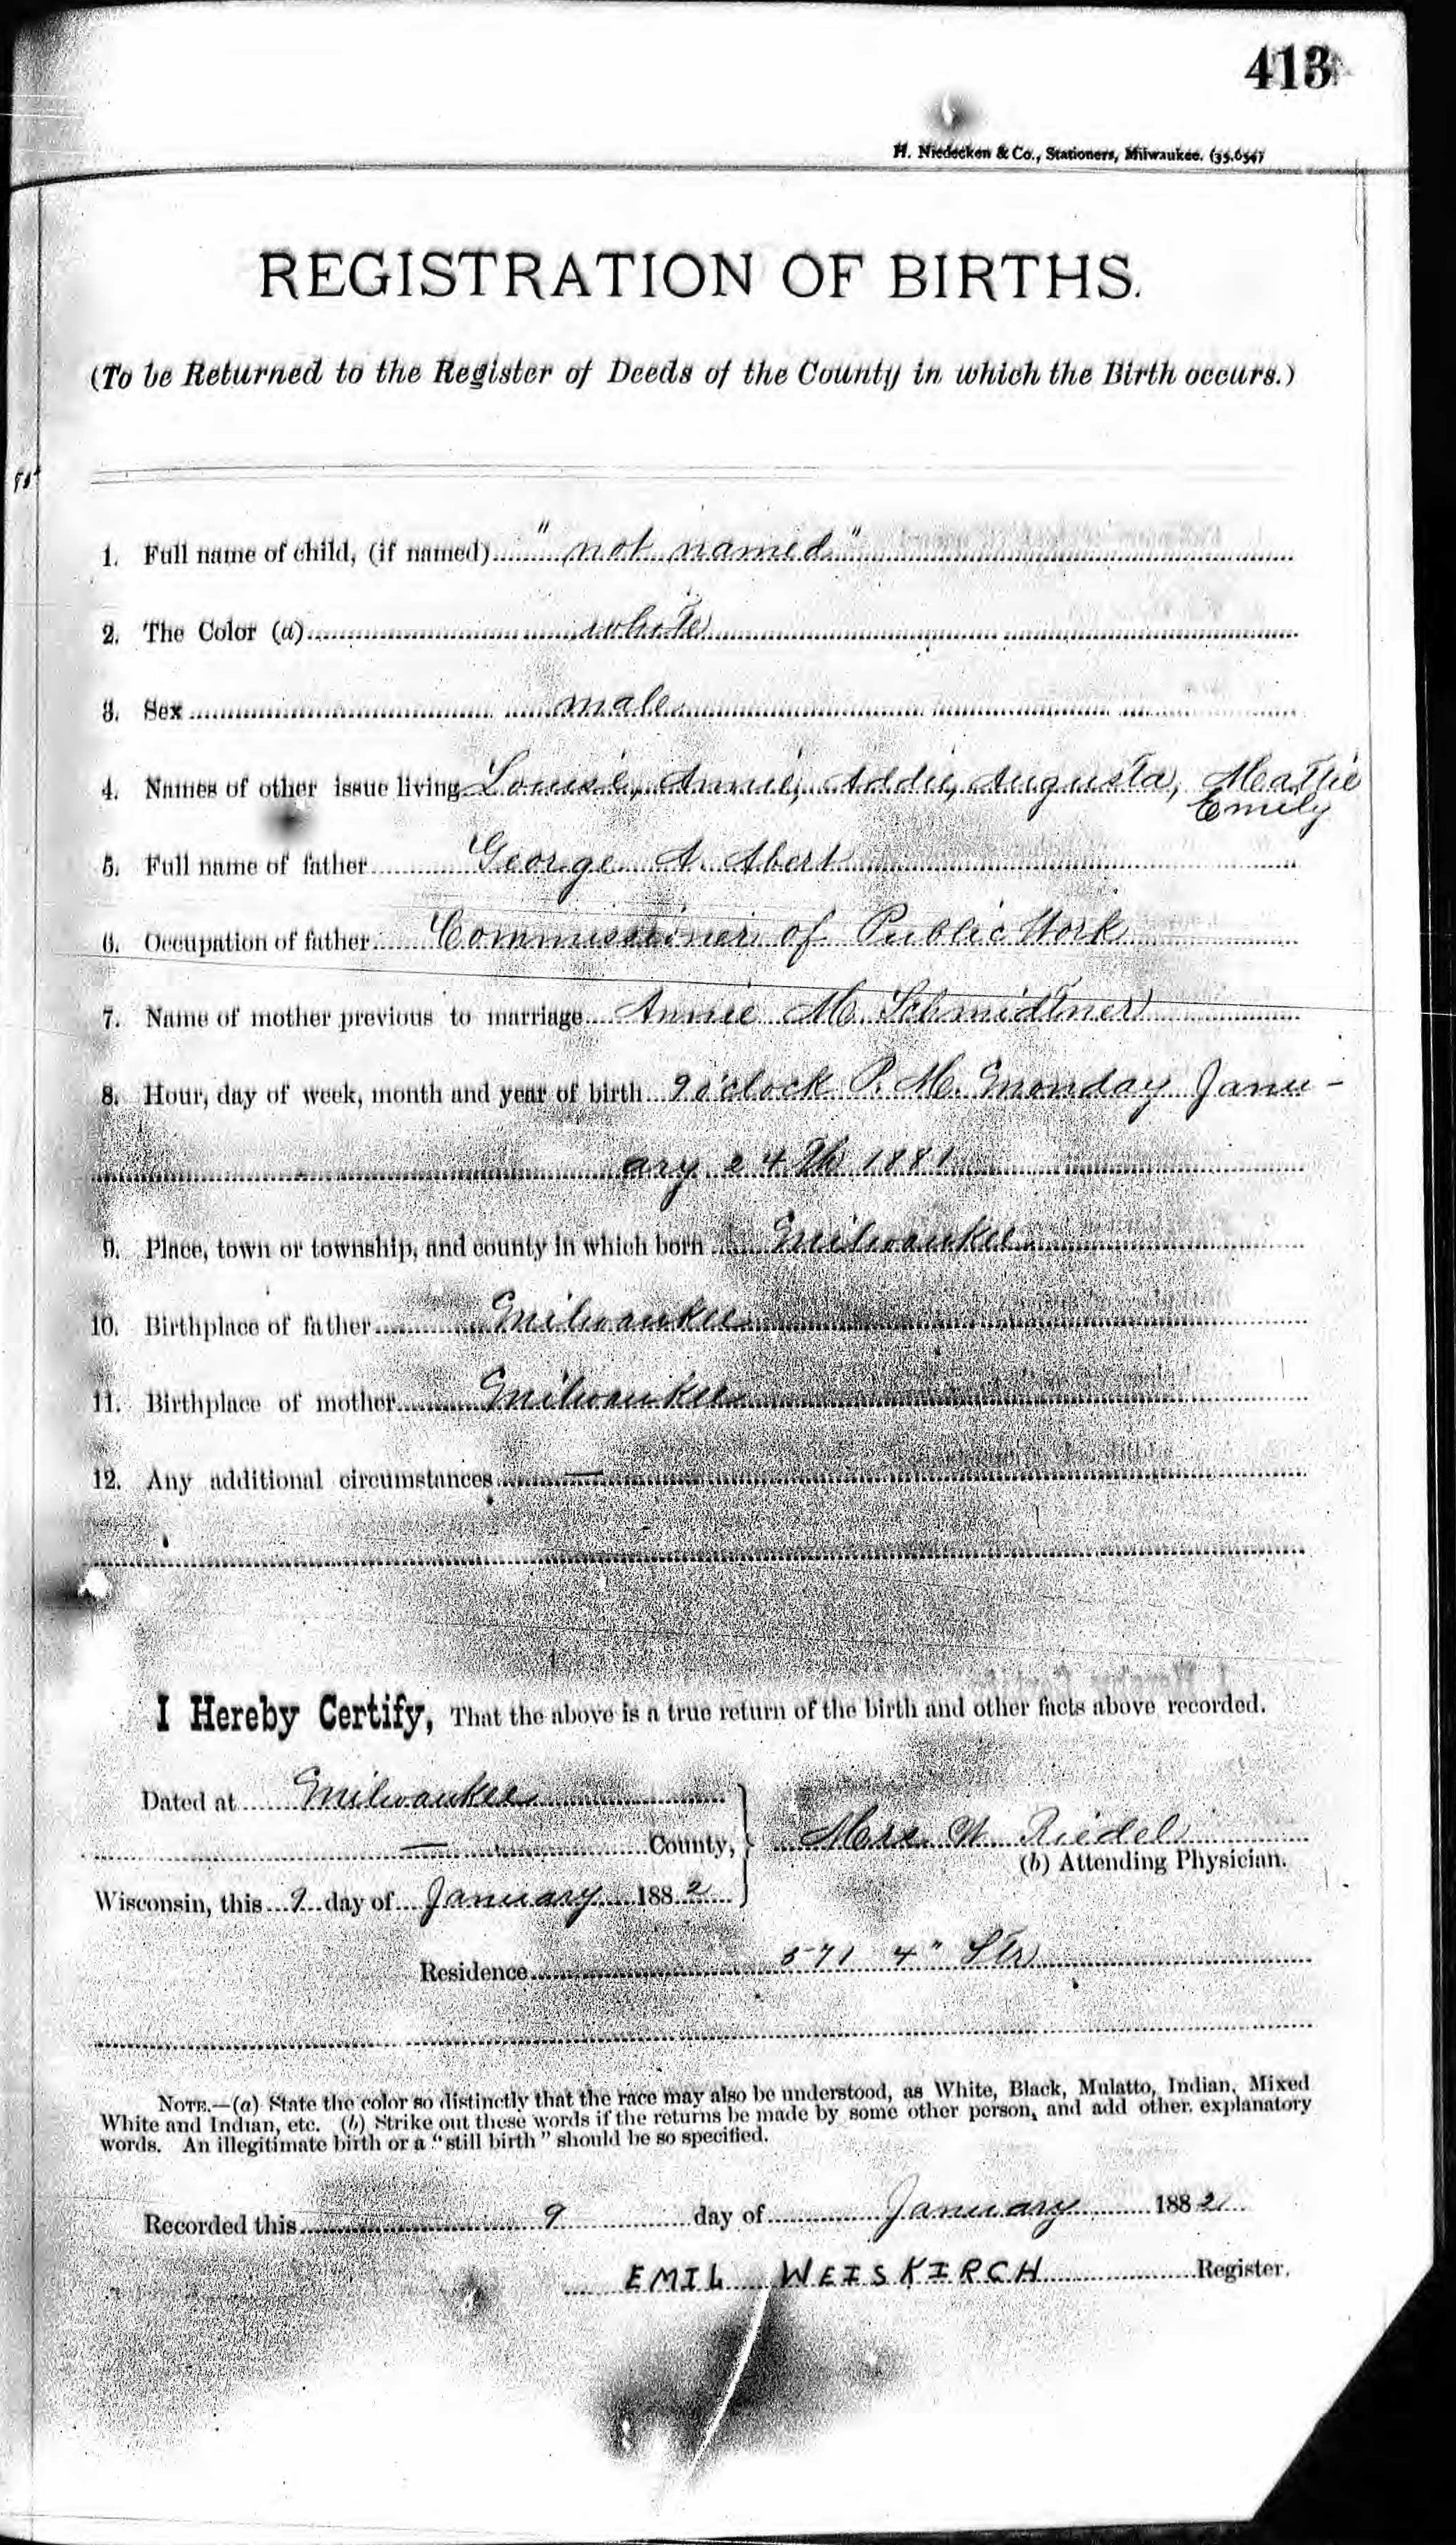 413
H. Niedecken & Co., Stationers, Milwaukee. (35,654)
REGISTRATION OF BIRTHS.
(To be Returned to the Register of Deeds of the County in which the Birth occurs.)
1. Full name of child, (if named) "not named"
2. The Color (a) white
3. Sex male
4. Names of other issue living Louise, Annie, Addie, Augusta, Mattie
Emily
5. Full name of father George A. Abert
6. Occupation of father Commissioner of Public Work
7. Name of mother previous to marriage Annie M. Schmidtner
8. Hour, day of week, month and year of birth 9 o'clock P. M. Monday Janu-
ary 24th 1881
9. Place, town or township, and county in which born Milwaukee
10. Birthplace of father Milwaukee
11. Birthplace of mother Milwaukee
12. Any additional circumstances —
I Hereby Certify, That the above is a true return of the birth and other facts above recorded.
Dated at Milwaukee
— County,
Mrs. W. Riedel
(b) Attending Physician.
Wisconsin, this 9 day of January 1882
Residence 571 4" Str
NOTE.—(a) State the color so distinctly that the race may also be understood, as White, Black, Mulatto, Indian, Mixed
White and Indian, etc. (b) Strike out these words if the returns be made by some other person, and add other explanatory
words. An illegitimate birth or a "still birth" should be so specified.
Recorded this 9 day of January 1882
EMIL WEISKIRCH Register.